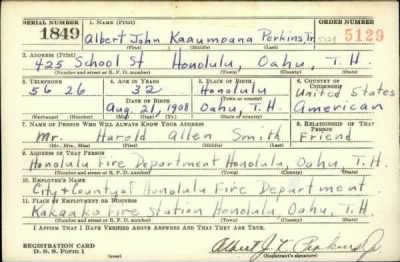 SERIAL NUMBER 1. NAME (Print) ORDER NUMBER
1849 Albert John Kaaumoana Perkins, Jr. 5129
(First) (Middle) (Last)
2. ADDRESS (Print)
425 School St Honolulu, Oahu, T.H.
(Number and street or R. F. D. number) (Town) (County) (State)
3. TELEPHONE 4. AGE IN YEARS 5. PLACE OF BIRTH 6. COUNTRY OF CITIZENSHIP
5626 32 Honolulu United States
DATE OF BIRTH (Town or county)
Aug. 21, 1908 Oahu, T.H. American
(Exchange) (Number) (Mo.) (Day) (Yr.) (State or country)
7. NAME OF PERSON WHO WILL ALWAYS KNOW YOUR ADDRESS 8. RELATIONSHIP OF THAT PERSON
Mr. Harold Allen Smith Friend
(Mr., Mrs., Miss) (First) (Middle) (Last)
9. ADDRESS OF THAT PERSON
Honolulu Fire Department Honolulu, Oahu, T.H.
(Number and street or R. F. D. number) (Town) (County) (State)
10. EMPLOYER'S NAME
City & County of Honolulu Fire Department
11. PLACE OF EMPLOYMENT OR BUSINESS
Kakaako Fire Station Honolulu, Oahu, T.H.
(Number and street or R. F. D. number) (Town) (County) (State)
I AFFIRM THAT I HAVE VERIFIED ABOVE ANSWERS AND THAT THEY ARE TRUE.
REGISTRATION CARD
D. S. S. Form 1 Albert J. K. Perkins Jr
(Registrant's signature)